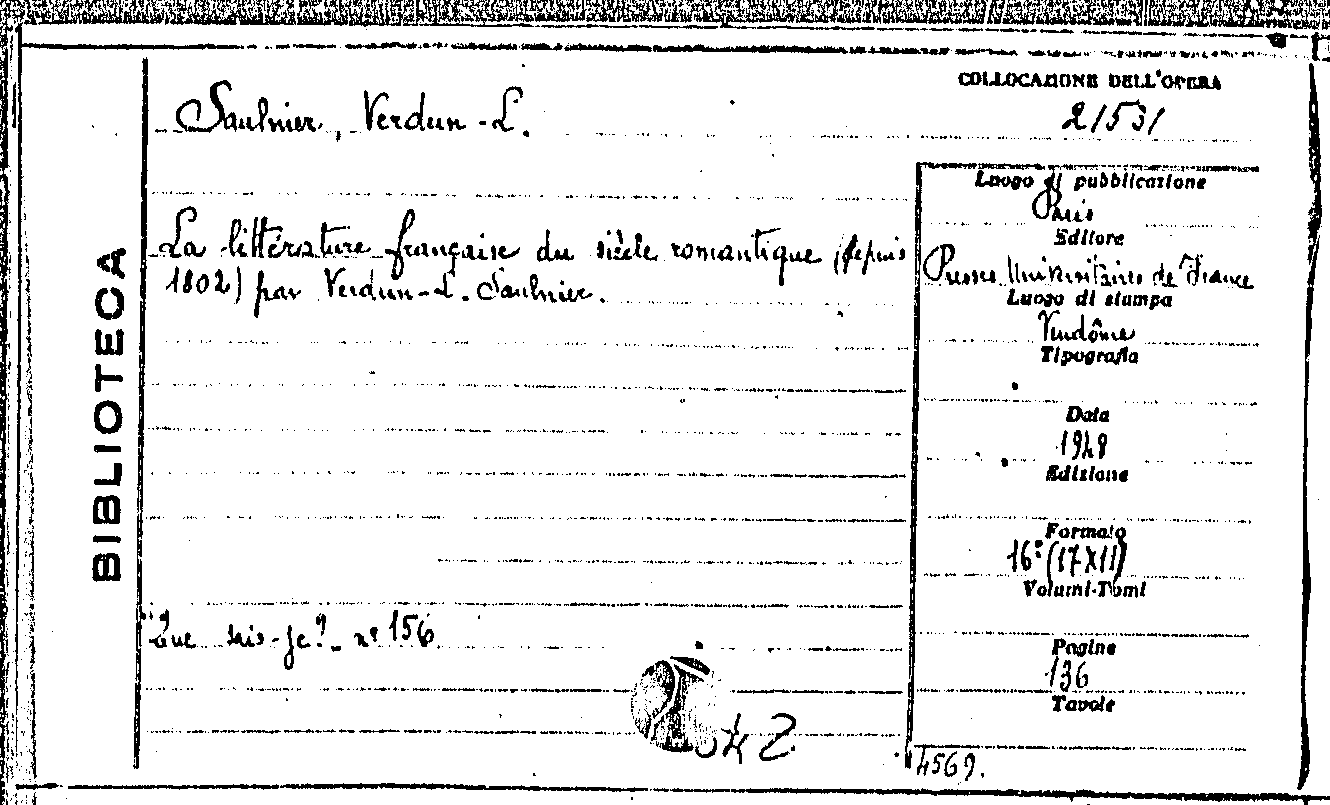 BIBLIOTECA
COLLOCAZIONE DELL'OPERA
2/531
Saulnier, Verdun-L.
La littérature française du siècle romantique (depuis
1802) par Verdun-L. Saulnier.
"Que sais-je? - nº 156
Luogo di pubblicazione
Paris
Editore
Presses Universitaires de France
Luogo di stampa
Vendôme
Tipografia
Data
1948
Edizione
Formato
16º (17X11)
Volumi-Tomi
Pagine
136
Tavole
4569.